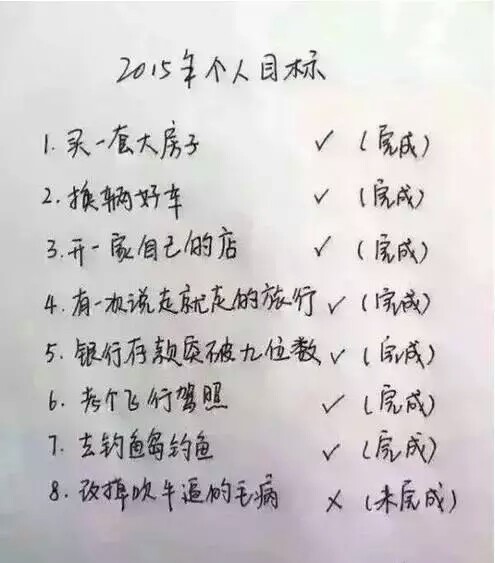 2015年个人目标
1.买一套大房子 ✓ (完成)
2.换辆好车 ✓ (完成)
3.开一家自己的店 ✓ (完成)
4.有一次说走就走的旅行 ✓ (完成)
5.银行存款突破九位数 ✓ (完成)
6.考个飞行驾照 ✓ (完成)
7.去钓鱼岛钓鱼 ✓ (完成)
8.改掉吹牛逼的毛病 × (未完成)